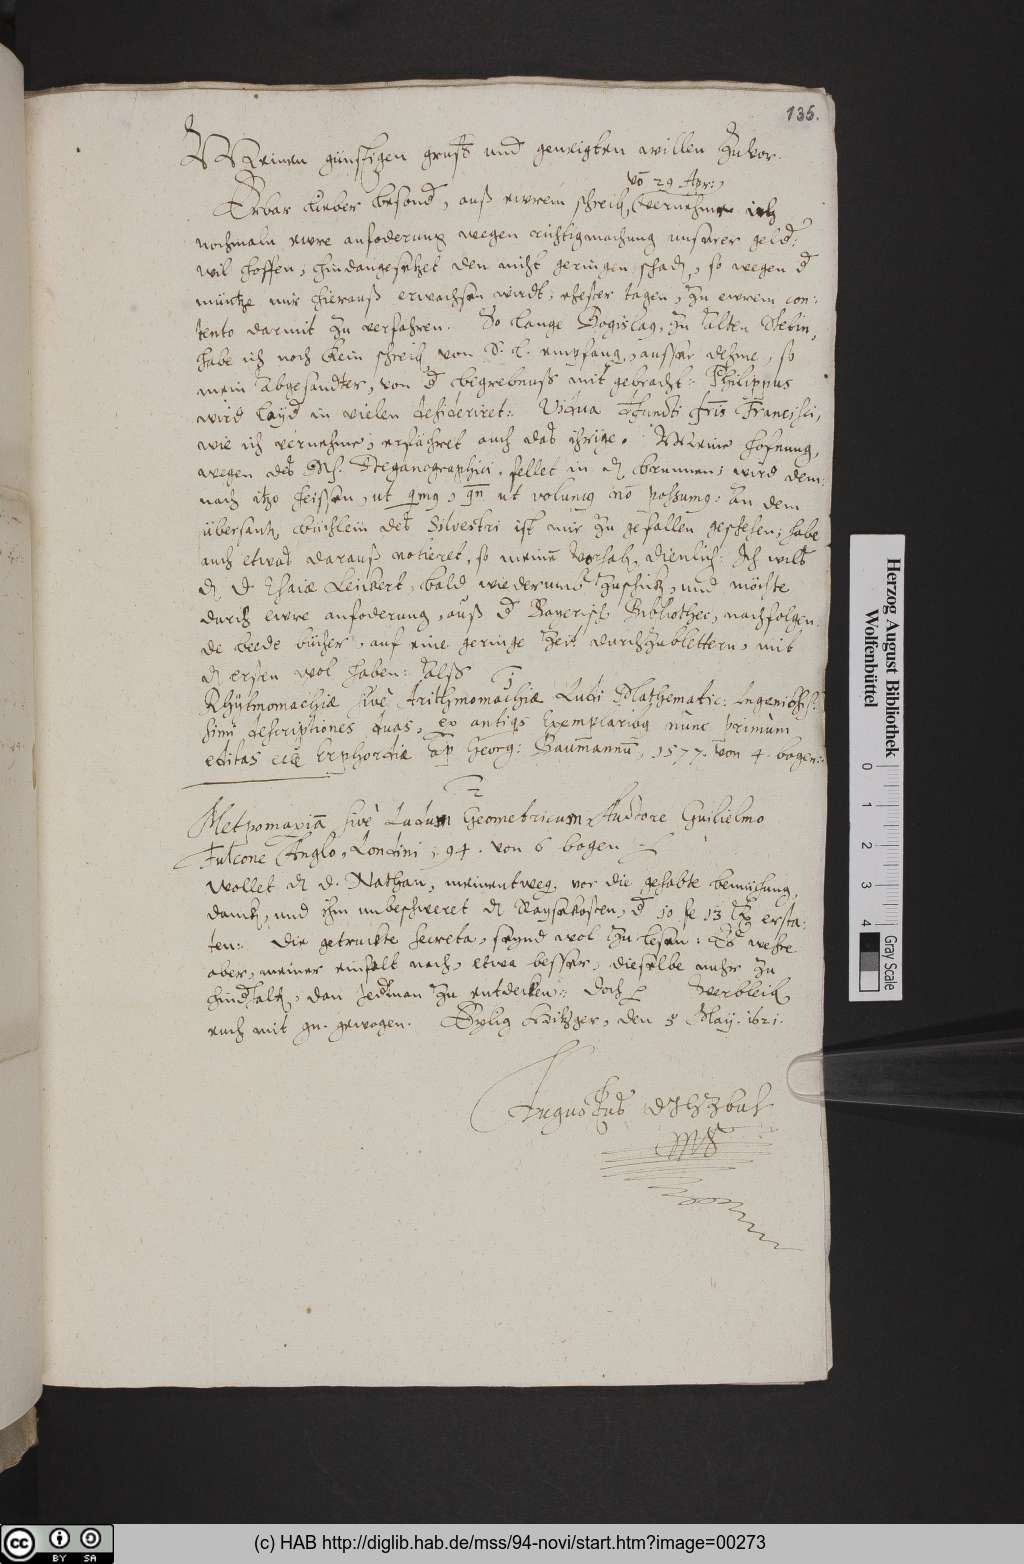 135.
Meinen günstigen gruß und geneigten willen zuvor.
vō 29 Apr:
Erbar lieber besond, auß ewrem schreib, vernehme ich
nochmaln ewre anfoderung wegen richtigmachung unserer geld:
wil hoffen, hindangesetzet den nicht geringen schad, so wegen d
müntze mir hierauß erwachsen wirdt; ehester tagen, zu ewrem con-
tento darmit zu verfahren. So lange Bogislaq, zu alten Stetin,
habe ich noch kein schreib von S. L. empfang, ausser dehme, so
mein abgesandter, von d begrebnuß mit gebracht: Philippus
wird layd in vielen desideriret: Vidua defuncti fris Francisci,
wie ich vernehme, erfähret auch das ihrige. Meine hofnung,
wegen des Ms. Steganographici, fellet in d brunnen; wird dem-
nach itzo heissen, ut qmq, qn ut volumq nō possumq: An dem
übersant, büchlein des Silvestri ist mir zu gefallen geschehen; habe
auch etwas darauß notieret, so meinē vorhab, dienlich. Ich wils
d d Esaiæ Leickert, bald wiederumb zuschick, und möchte
durch ewre anfoderung, auß d Bayerisch Bibliothec, nachfolgen-
de beede bücher, auf eine geringe zeit durchzublettern, mit
d ersten wol haben: Alß
1
Rhytmomachiæ sive Arithmomachiæ Ludi Mathematic: Ingeniosis-
simi descriptiones duas, ex antiqs Exemplaribq nunc primùm
editas esse Erphordiæ ap Georg: Baumannū, 1577. von 4. bogen:
2
Metromaxiā sivè Ludum Geometricum, Auctore Guilielmo
Fulcone Anglo, Londini, 94. von 6 bogen
Wollet d d. Nathan, meinentweg, vor die gehabte bemühung,
danck, und ihm unbeschweret d Raysekosten, d 10 fl 13 erstat-
ten: Die getruckte Secreta, seynd wol zu lesen: Es wehre
aber, meiner einfalt nach, etwa besser, dieselbe mehr zu
hindhalt, dan jedman zu entdecken: Doch Verbleib
euch mit gn. gewogen. Eylig Hitzger, den 5 May. 1621.
Augustus
(c) HAB http://diglib.hab.de/mss/94-novi/start.htm?image=00273
Herzog August Bibliothek
Wolfenbüttel
0 1 2 3 4
Gray Scale
cc BY SA